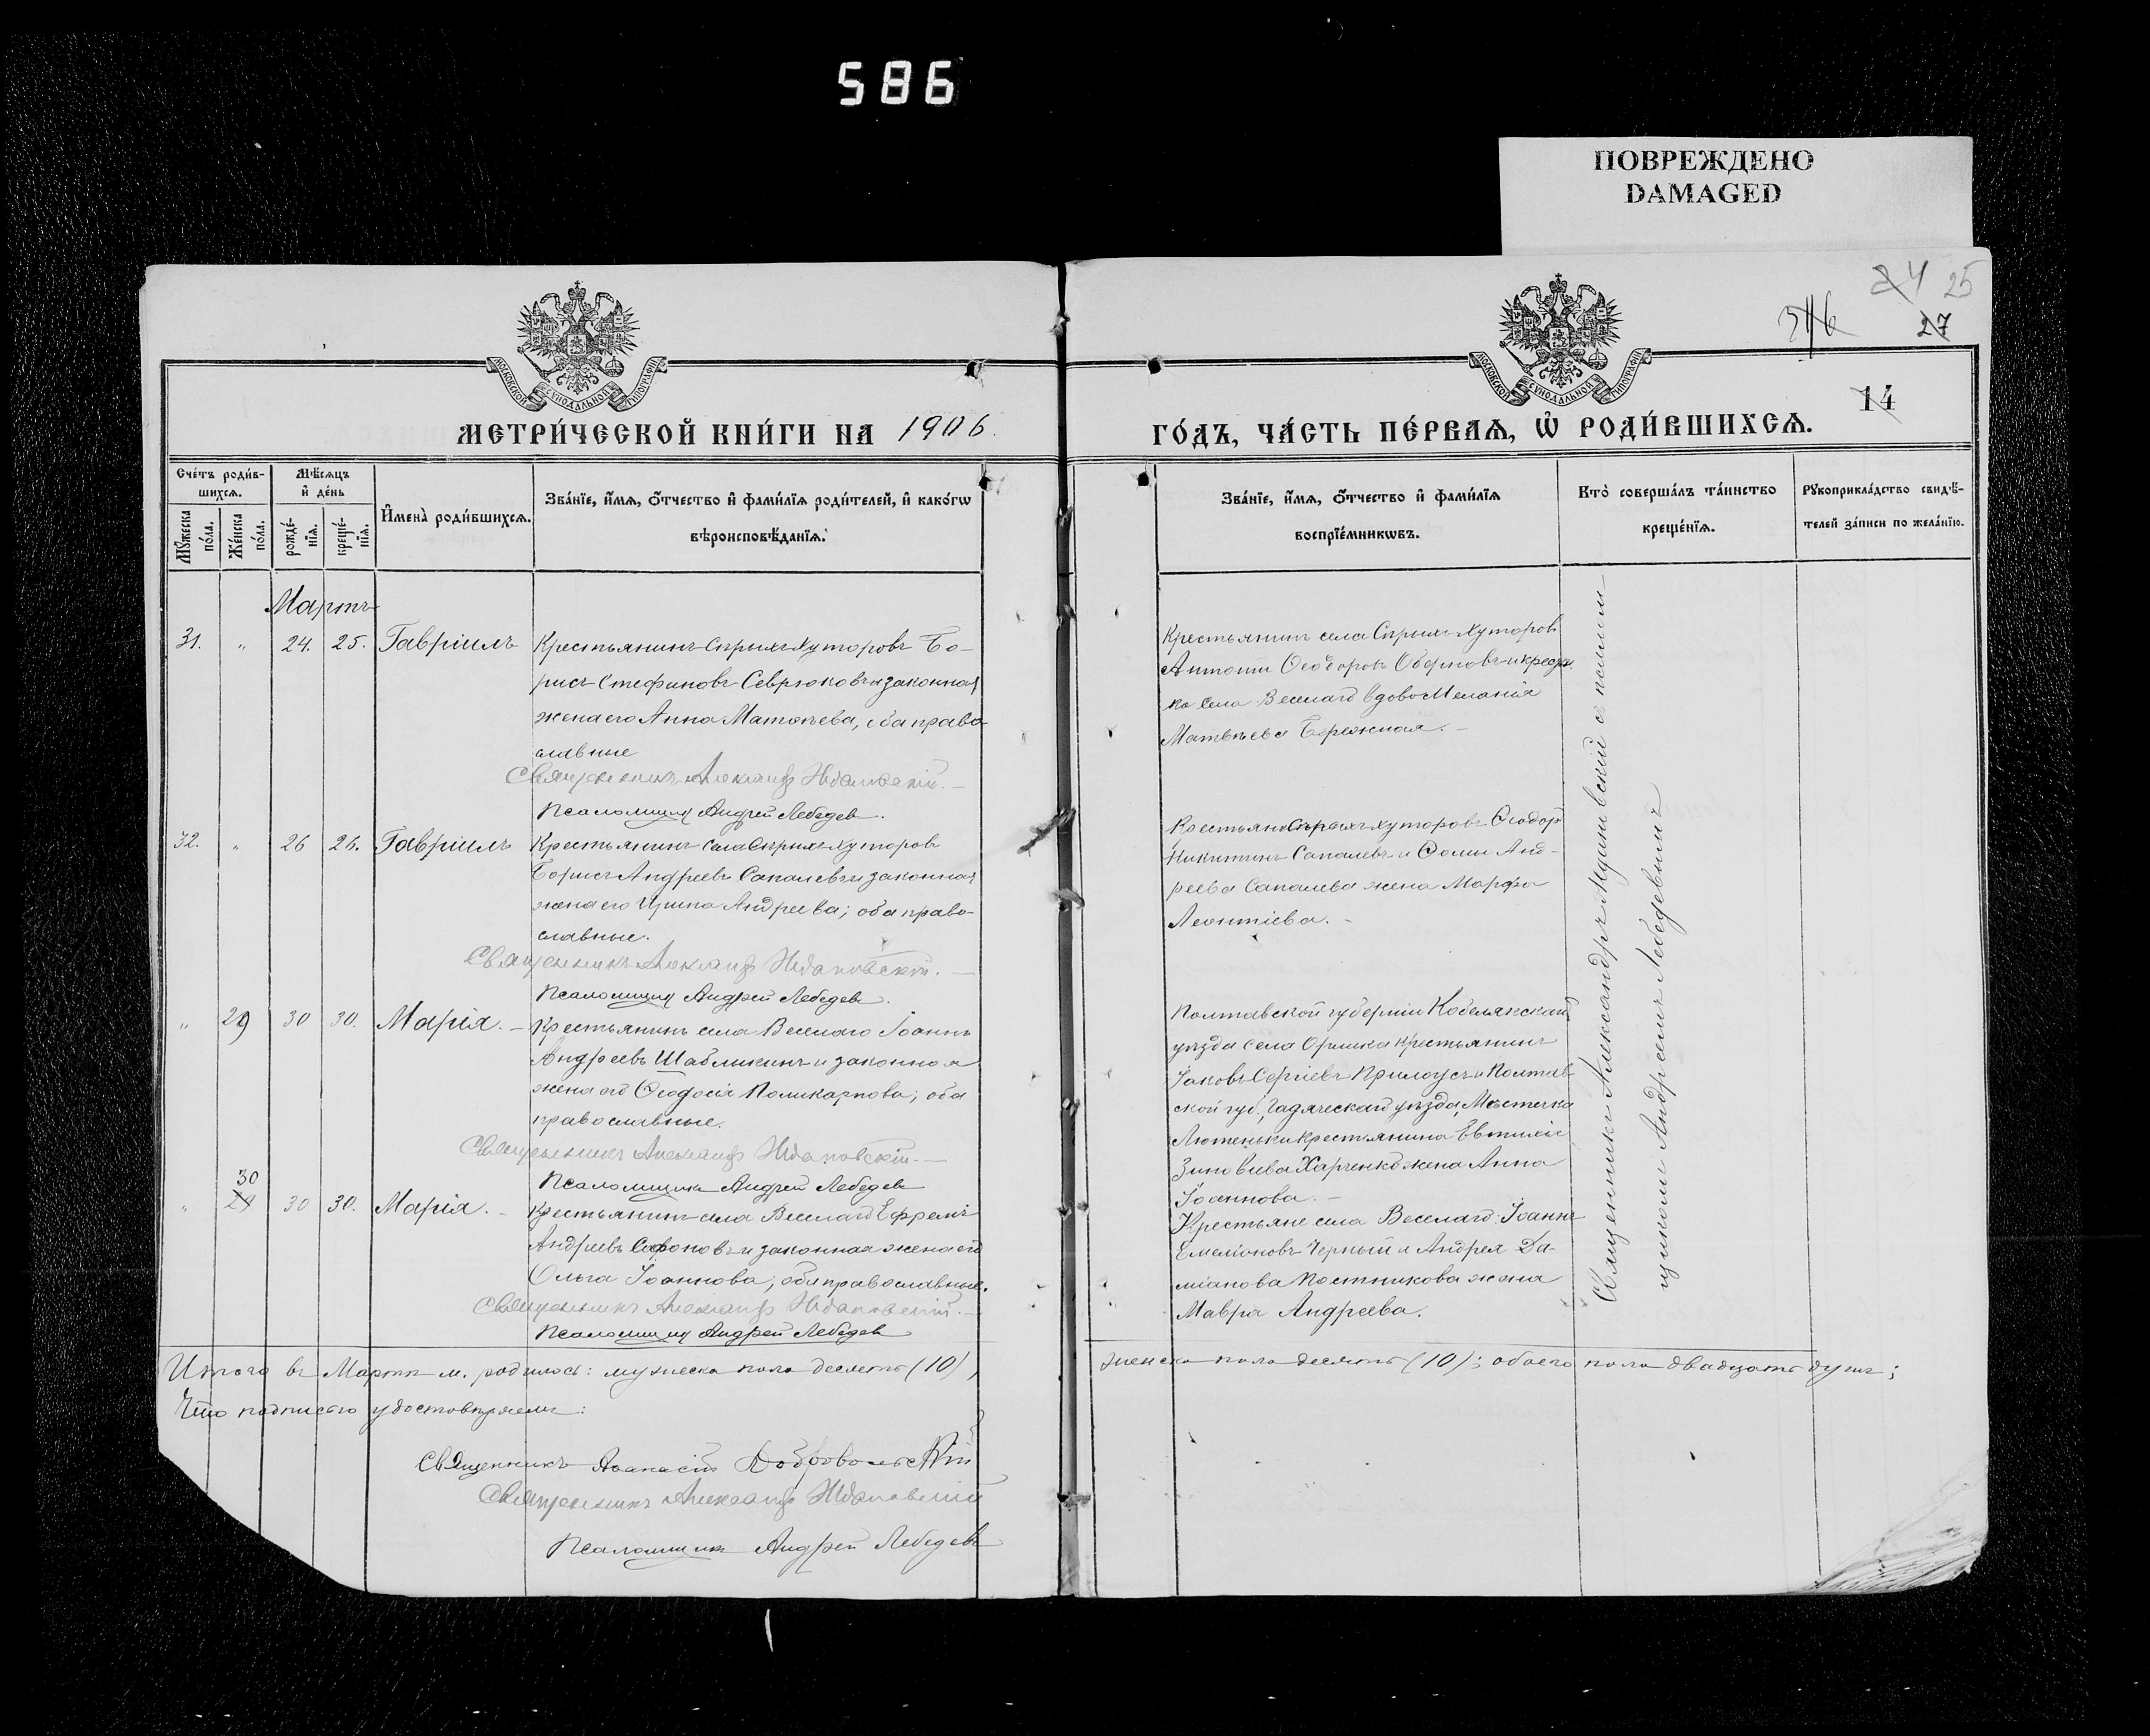 586
ПОВРЕЖДЕНО
DAMAGED
24 25
27
14
МОСКОВСКОЙ СѴНОДАЛЬНОЙ ТИПОГРАФІИ
МОСКОВСКОЙ СѴНОДАЛЬНОЙ ТИПОГРАФІИ
МЕТРИ́ЧЕСКОЙ КНИ́ГИ НА 1906.
ГО́ДЪ, ЧА́СТЬ ПЕ́РВАѦ, Ѡ҆ РОДИ́ВШИХСѦ.
Сче́тъ роди́в-
шихсѧ.
Мꙋ́жеска по́ла.
Же́нска по́ла.
Мѣ́сѧцъ
и҆ де́нь
рожде́-
нїѧ.
креще́-
нїѧ.
И҆мена̀ роди́вшихсѧ.
Зва́нїе, и҆́мѧ, ѻ҆́тчество и҆ фами́лїѧ роди́телей, и҆ како́гѡ
вѣроисповѣ́данїѧ.
Зва́нїе, и҆́мѧ, ѻ҆́тчество и҆ фами́лїѧ
воспрїе́мникѡвъ.
Кто̀ соверша́лъ та́инство
креще́нїѧ.
Рꙋкоприкла́дство свидѣ́-
телей за́писи по жела́нїю.
Мартъ
31. " 24. 25. Гавріилъ
Крестьянинъ Сѣрыхъ Хуторовъ Бо-
рисъ Стефановъ Севрюковъ и законная
жена его Анна Матѳѣева, оба право-
славные
Священникъ Александръ Ждановскій.
Псаломщикъ Андрей Лебедев.
Крестьянинъ села Сѣрыхъ Хуторовъ
Антоній Ѳеодоровъ и крестьян
ка села Веселаго вдова Меланія
Матвѣева Бережная.
32. " 26 26. Гавріилъ
Крестьянинъ села Сѣрыхъ Хуторовъ
Борисъ Андреевъ Сапалевъ и законная
жена его Ирина Андреева; оба право-
славные.
Священникъ Александръ Ждановскій.
Псаломщикъ Андрей Лебедев.
Крестьяне Сѣрыхъ хуторовъ Ѳеодоръ
Никитинъ Сапалевъ и Ѳомы Анд-
реева Сапалева жена Марфа
Леонтіева.
" 29 30 30. Марія.
Крестьянинъ села Веселаго Іоаннъ
Андреевъ Шабликинъ и законная
жена его Ѳеодосія Поликарпова; оба
православные.
Священникъ Александръ Ждановскій.
Псаломщикъ Андрей Лебедев
Полтавской губерніи Кобелякскаго
уѣзда села Орлика крестьянинъ
Іаковъ Сергіевъ Прилоусъ и Полтав
ской губ., Гадяческаго уѣзда, Мѣстечка
Лютеньки крестьянина Евтихія
Зиновіева Харченко жена Анна
Іоаннова.
" 30 30 30. Марія.
Крестьянинъ села Веселаго Ефремъ
Андреевъ Сафоновъ и законная жена его
Ольга Іоаннова; оба православные.
Священникъ Александръ Ждановскій.
Псаломщикъ Андрей Лебедев
Крестьяне села Веселаго: Іоаннъ
Емеліановъ Черный и Андрея Да-
міанова Постникова жена
Мавра Андреева.
Священникъ Александръ Ждановскій съ псалом-
щикомъ Андреемъ Лебедевымъ
Итого въ Мартѣ м. родилось: мужеска пола десять (10),
женска пола десять (10); обоего пола двадцать душъ;
Что подписью удостовѣряемъ:
Священникъ Аѳанасій Добровольскій
Священникъ Александръ Ждановскій
Псаломщикъ Андрей Лебедевъ